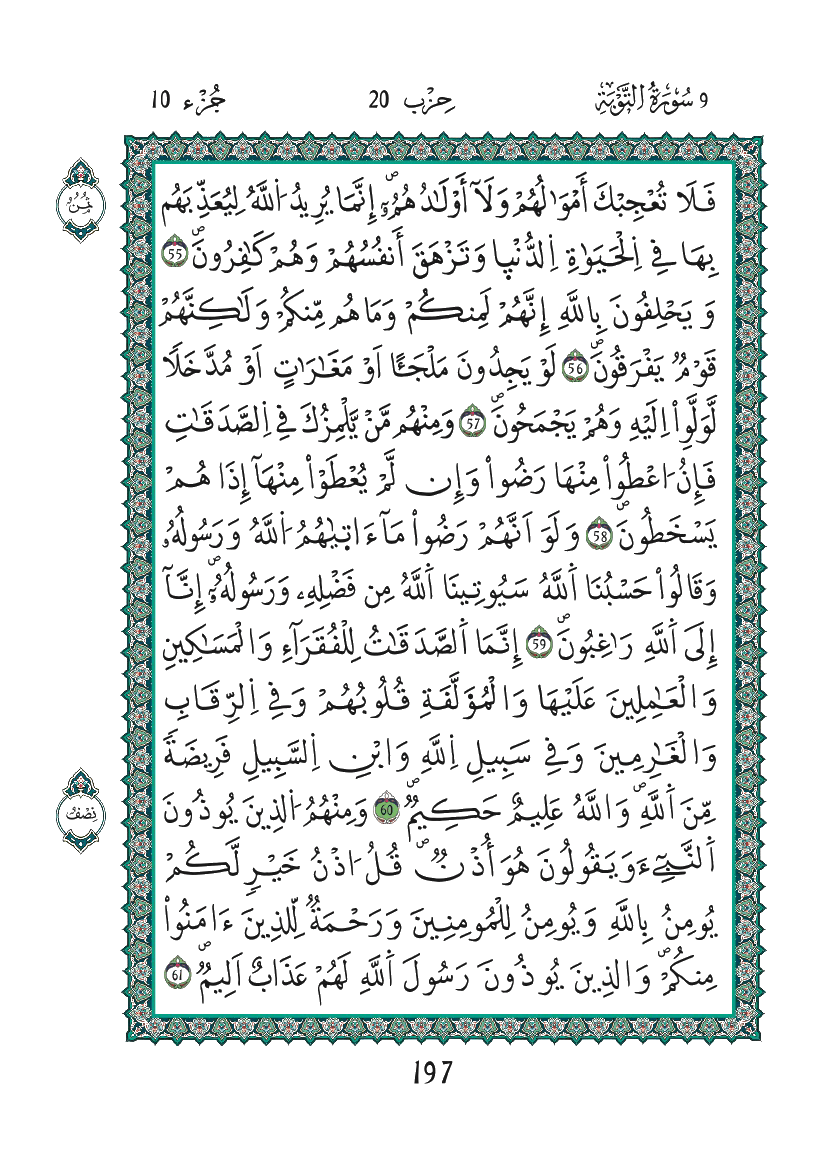 9 سُورَةُ التَّوْبَةِ حِزْب 20 جُزْء 10
ثُمُنٌ
فَلَا تُعْجِبْكَ أَمْوَٰلُهُمْ وَلَآ أَوْلَٰدُهُمُۥٓۖ إِنَّمَا يُرِيدُ اَ۬للَّهُ لِيُعَذِّبَهُم
بِهَا فِے اِ۬لْحَيَوٰةِ اِ۬لدُّنْيٜا وَتَزْهَقَ أَنفُسُهُمْ وَهُمْ كَٰفِرُونَۖ 55
وَيَحْلِفُونَ بِاللَّهِ إِنَّهُمْ لَمِنكُمْ وَمَا هُم مِّنكُمْ وَلَٰكِنَّهُمْ
قَوْمٌ يَفْرَقُونَۖ 56 لَوْ يَجِدُونَ مَلْجَـًٔا اَوْ مَغَٰرَٰتٍ اَوْ مُدَّخَلًا
لَّوَلَّوِاْ اِلَيْهِ وَهُمْ يَجْمَحُونَۖ 57 وَمِنْهُم مَّنْ يَّلْمِزُكَ فِے اِ۬لصَّدَقَٰتِ
فَإِنُ ا۟عْطُواْ مِنْهَا رَضُواْ وَإِن لَّمْ يُعْطَوْاْ مِنْهَآ إِذَا هُمْ
يَسْخَطُونَۖ 58 وَلَوَ اَنَّهُمْ رَضُواْ مَآ ءَات۪يٰهُمُ اُ۬للَّهُ وَرَسُولُهُۥ
وَقَالُواْ حَسْبُنَا اَ۬للَّهُ سَيُوتِينَا اَ۬للَّهُ مِن فَضْلِهِۦ وَرَسُولُهُۥٓۖ إِنَّآ
إِلَى اَ۬للَّهِ رَٰغِبُونَۖ 59 إِنَّمَا اَ۬لصَّدَقَٰتُ لِلْفُقَرَآءِ وَالْمَسَٰكِينِ
وَالْعَٰمِلِينَ عَلَيْهَا وَالْمُؤَلَّفَةِ قُلُوبُهُمْ وَفِے اِ۬لرِّقَابِ
وَالْغَٰرِمِينَ وَفِے سَبِيلِ اِ۬للَّهِ وَابْنِ اِ۬لسَّبِيلِ فَرِيضَةً
نِصْفٌ
مِّنَ اَ۬للَّهِۖ وَاللَّهُ عَلِيمٌ حَكِيمٌۖ 60 وَمِنْهُمُ اُ۬لذِينَ يُوذُونَ
اَ۬لنَّبِےٓءَ وَيَقُولُونَ هُوَ أُذْنٌۖ قُلُ ا۟ذْنُ خَيْرٖ لَّكُمْ
يُومِنُ بِاللَّهِ وَيُومِنُ لِلْمُومِنِينَ وَرَحْمَةٌ لِّلذِينَ ءَامَنُواْ
مِنكُمْۖ وَالذِينَ يُوذُونَ رَسُولَ اَ۬للَّهِ لَهُمْ عَذَابٌ اَلِيمٌۖ 61
197